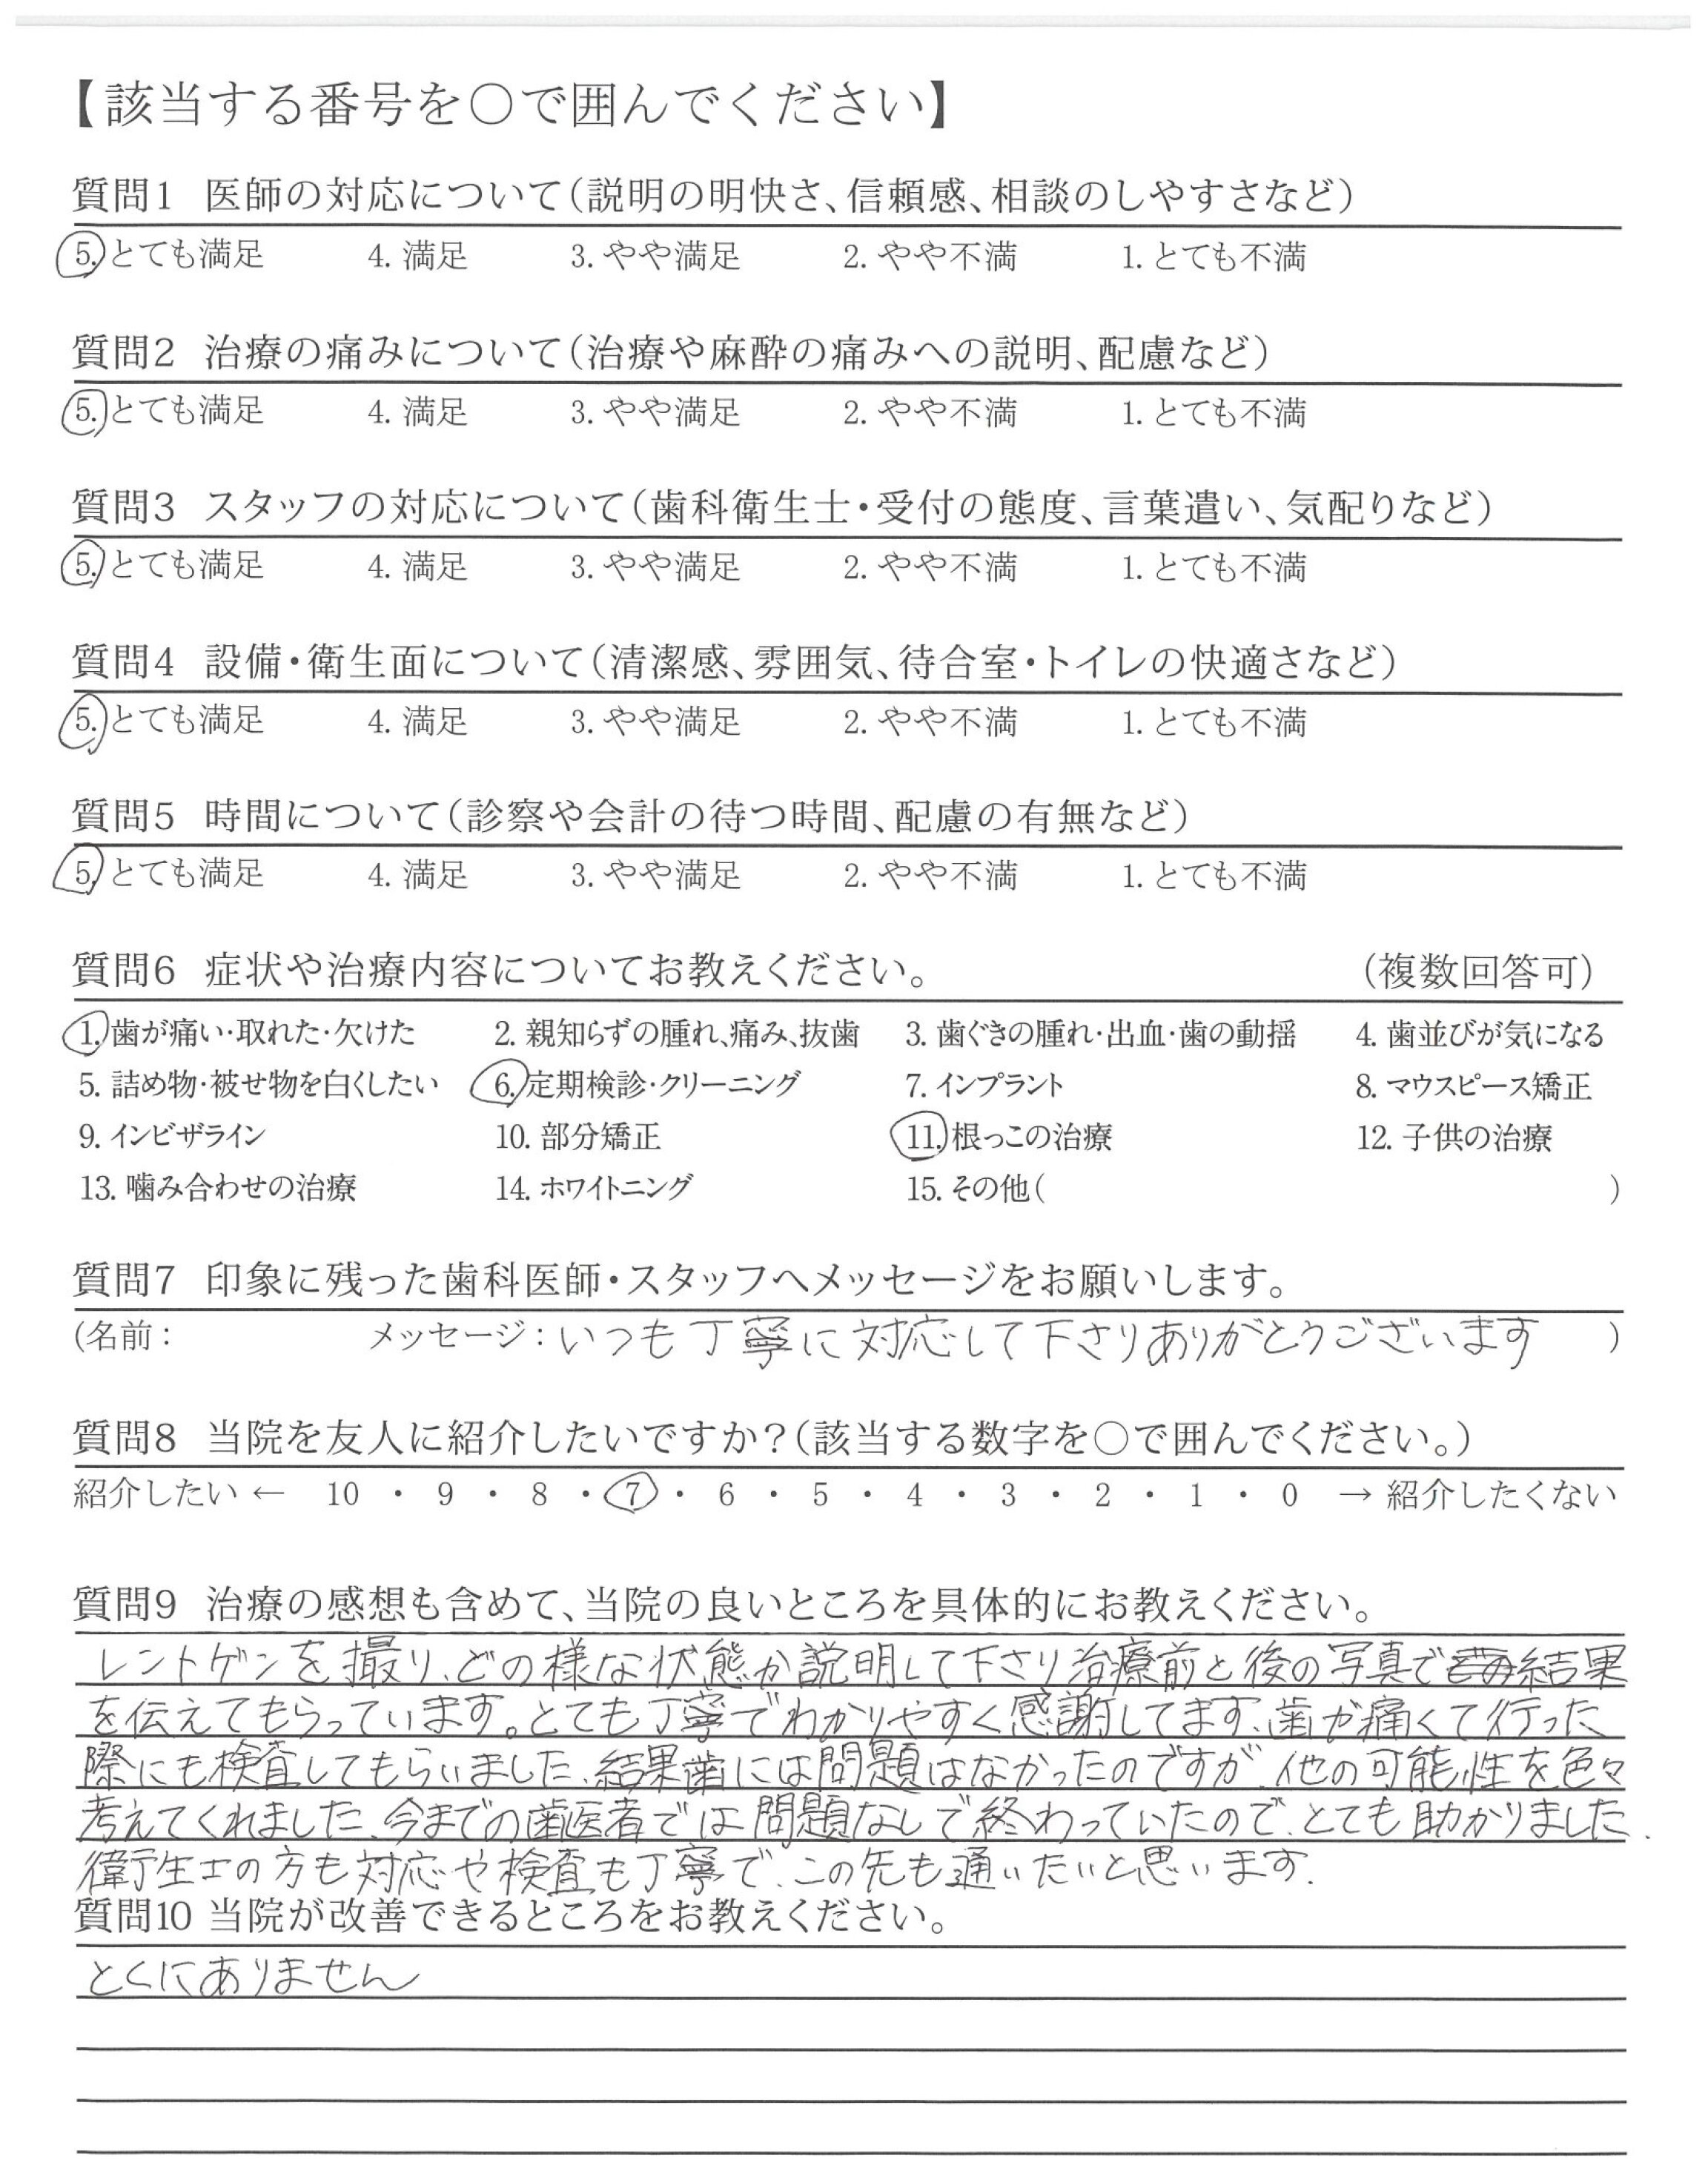 【該当する番号を〇で囲んでください】
質問1 医師の対応について(説明の明快さ、信頼感、相談のしやすさなど)
5. とても満足 4. 満足 3. やや満足 2. やや不満 1. とても不満
質問2 治療の痛みについて(治療や麻酔の痛みへの説明、配慮など)
5. とても満足 4. 満足 3. やや満足 2. やや不満 1. とても不満
質問3 スタッフの対応について(歯科衛生士・受付の態度、言葉遣い、気配りなど)
5. とても満足 4. 満足 3. やや満足 2. やや不満 1. とても不満
質問4 設備・衛生面について(清潔感、雰囲気、待合室・トイレの快適さなど)
5. とても満足 4. 満足 3. やや満足 2. やや不満 1. とても不満
質問5 時間について(診察や会計の待つ時間、配慮の有無など)
5. とても満足 4. 満足 3. やや満足 2. やや不満 1. とても不満
質問6 症状や治療内容についてお教えください。 (複数回答可)
1. 歯が痛い・取れた・欠けた 2. 親知らずの腫れ、痛み、抜歯 3. 歯ぐきの腫れ・出血・歯の動揺 4. 歯並びが気になる
5. 詰め物・被せ物を白くしたい 6. 定期検診・クリーニング 7. インプラント 8. マウスピース矯正
9. インビザライン 10. 部分矯正 11. 根っこの治療 12. 子供の治療
13. 噛み合わせの治療 14. ホワイトニング 15. その他( )
質問7 印象に残った歯科医師・スタッフへメッセージをお願いします。
(名前: メッセージ:いつも丁寧に対応して下さりありがとうございます )
質問8 当院を友人に紹介したいですか?(該当する数字を〇で囲んでください。)
紹介したい ← 10 ・ 9 ・ 8 ・ 7 ・ 6 ・ 5 ・ 4 ・ 3 ・ 2 ・ 1 ・ 0 → 紹介したくない
質問9 治療の感想も含めて、当院の良いところを具体的にお教えください。
レントゲンを撮り、どの様な状態か説明して下さり治療前と後の写真で結果
を伝えてもらっています。とても丁寧でわかりやすく感謝してます、歯が痛くて行った
際にも検査してもらいました、結果歯には問題はなかったのですが、他の可能性を色々
考えてくれました、今までの歯医者では問題なしで終わっていたので、とても助かりました.
衛生士の方も対応や検査も丁寧で、この先も通いたいと思います.
質問10 当院が改善できるところをお教えください。
とくにありません